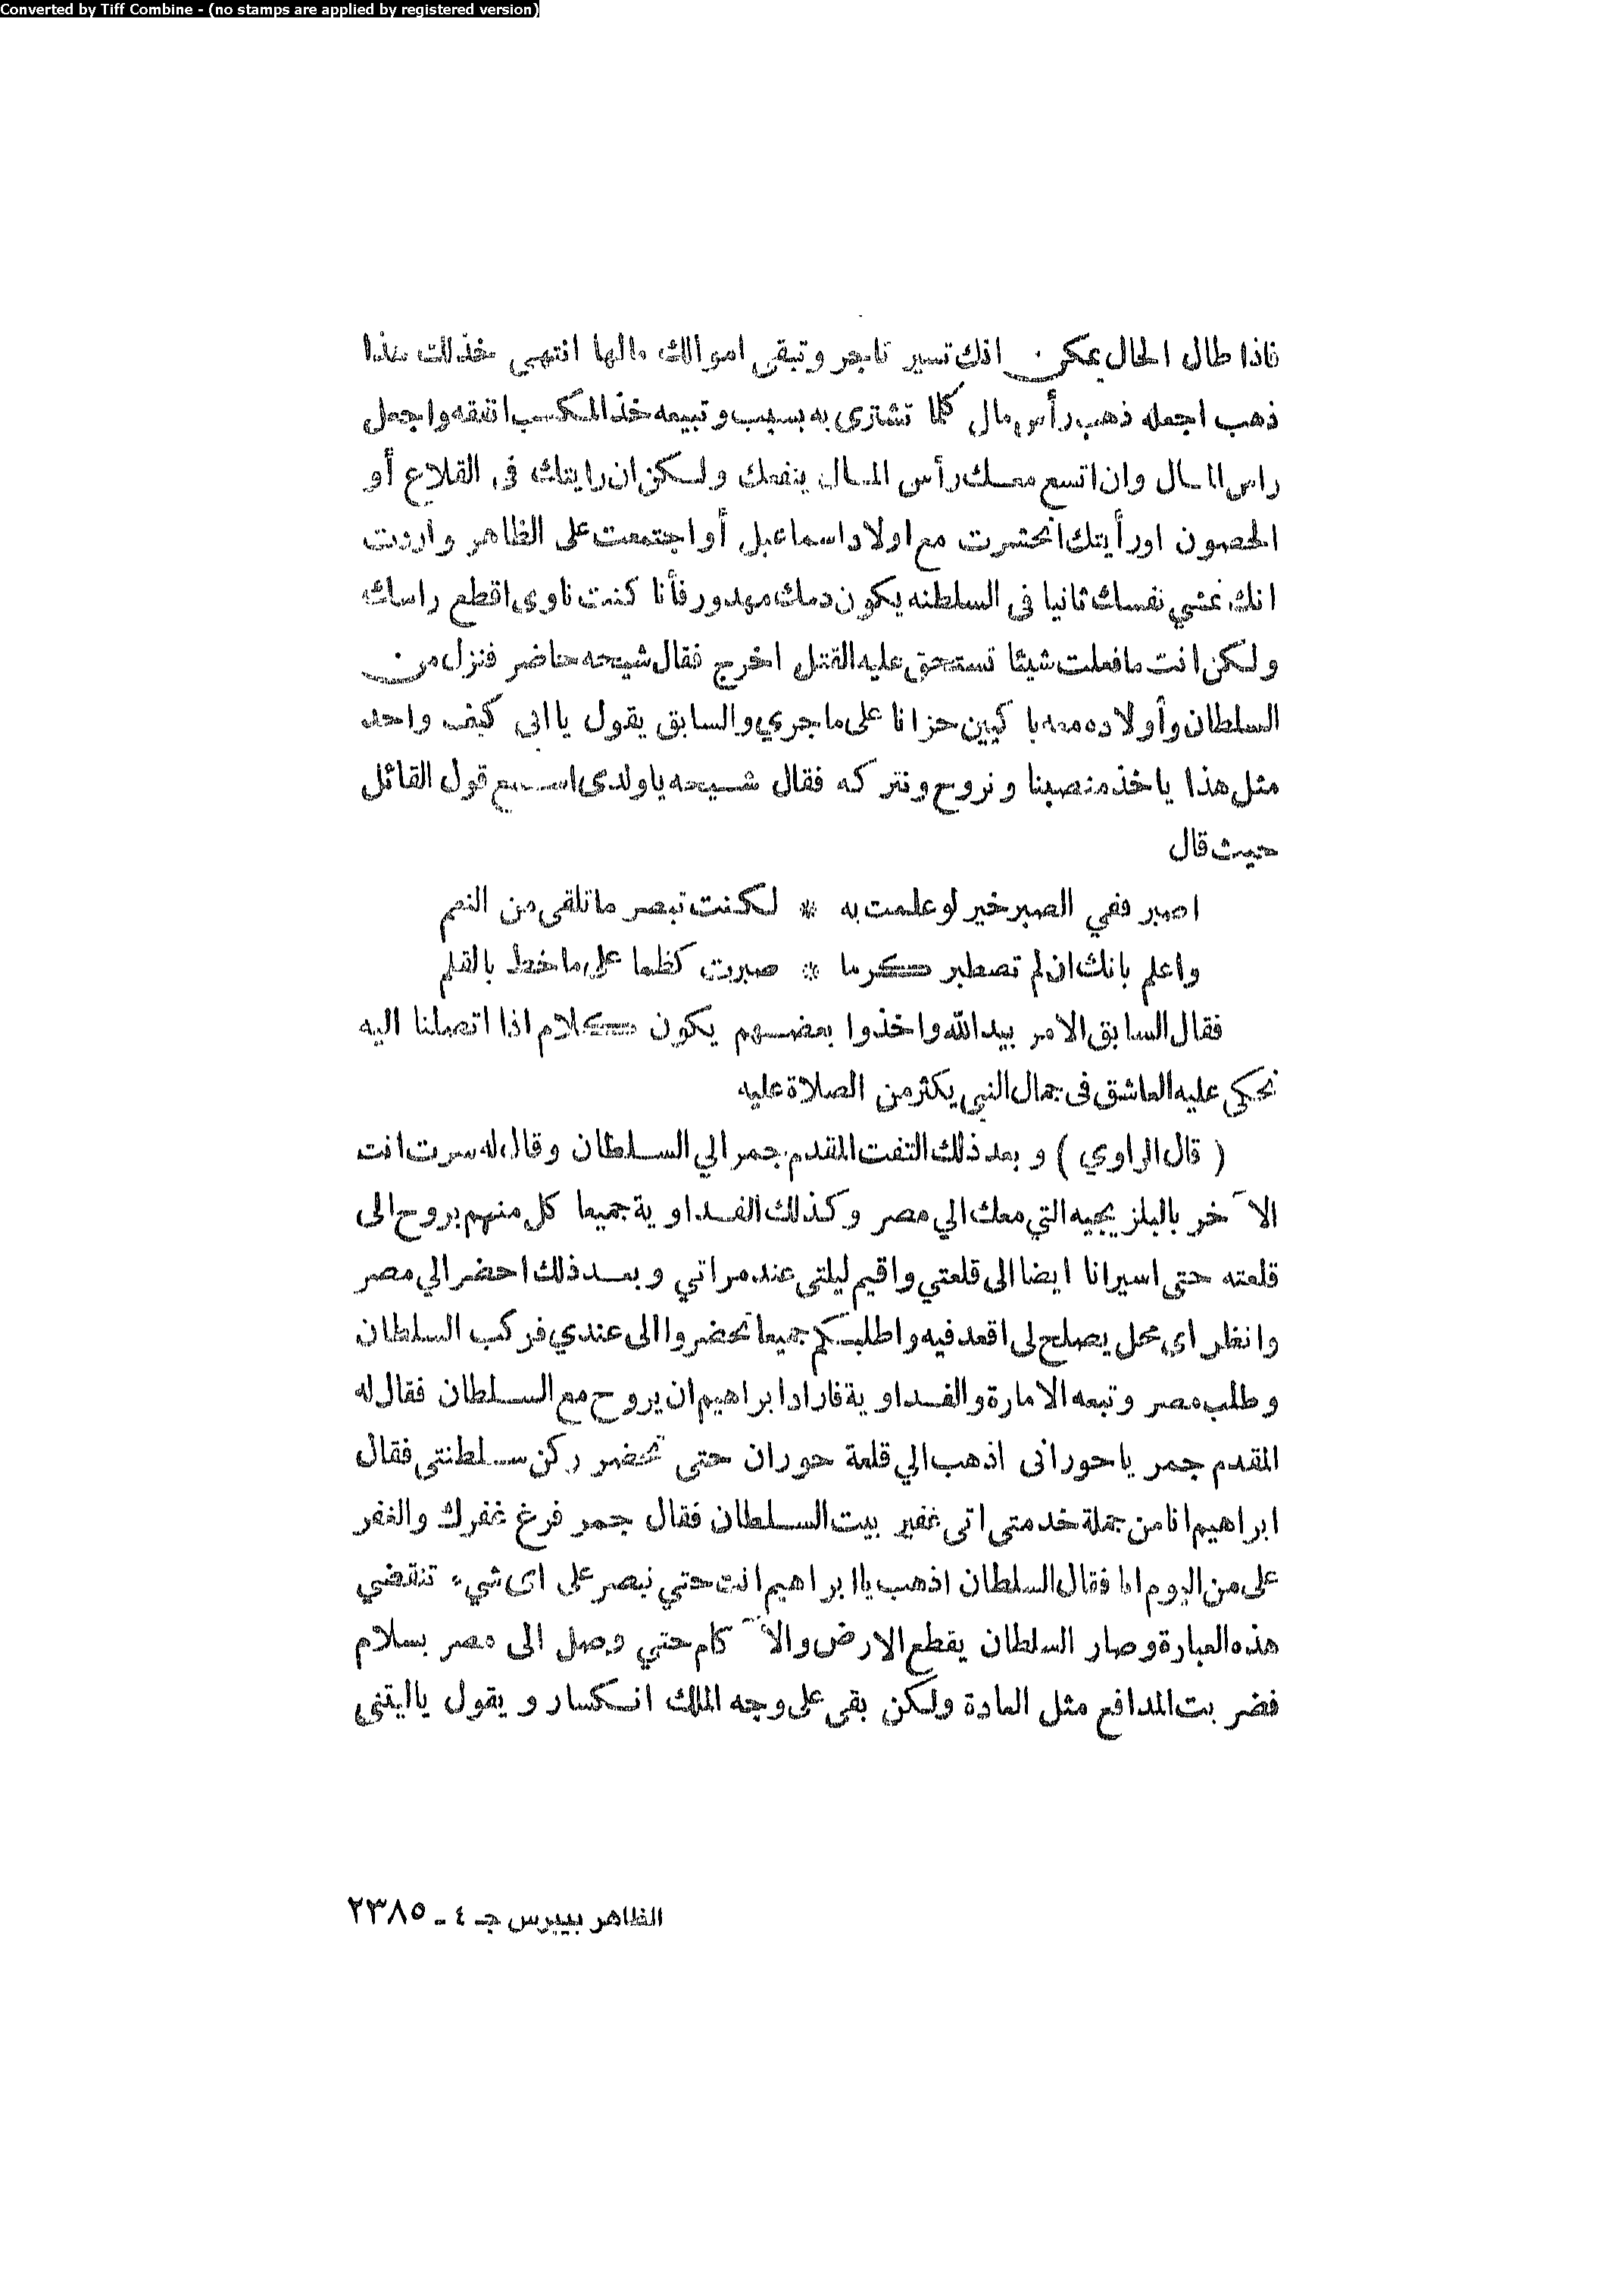 Converted by Tiff Combine - (no stamps are applied by registered version)
فاذا طال الحال يمكن انك تسير تاجر وتبقى اموالك مالها انتهى خذلك هذا
ذهب اجعله ذهب رأس مال كلما تشترى به بسبب وتبيعه خذ المكسب اتفقه واجعل
راس المال وان اتسع معك رأس المال ينفعك ولكن ان رايتك فى القلاع أو
الحصون اورأيتك انحشرت مع اولاد اسماعيل أو اجتمعت على الظاهر واردت
انك تمشي نفسك ثانيا فى السلطنه يكون دمك مهدور فأنا كنت ناوى اقطع راسك
ولكن انت مافعلت شيئا تستحق عليه القتل اخرج فقال شيحه حاضر فنزل من
السلطان وأولاده معه باكيين حزانا على ماجري والسابق يقول ياابى كيف واحد
مثل هذا ياخذ منصبنا ونروح ونتركه فقال شيحه ياولدى اسمع قول القائل
حيث قال
اصبر ففي الصبر خير لو علمت به * لكنت تبصر ماتلقى من النعم
واعلم بانك ان لم تصطبر كرما * صبرت كظما على ماخط بالقلم
فقال السابق الامر بيد الله واخذوا بعضهم يكون كلام اذا اتصلنا اليه
نحكى عليه العاشق فى جمال النبي يكثر من الصلاة عليه
( قال الراوي ) وبعد ذلك التفت المقدم جمر الي السلطان وقال له سرت انت
الآخر بالبلزيجيه التي معك الي مصر وكذلك الفداوية جميعا كل منهم يروح الى
قلعته حتى اسير انا ايضا الى قلعتي واقيم ليلتى عند مراتي وبعد ذلك احضر الي مصر
وانظر اى محل يصلح لى اقعد فيه واطلبكم جميعا تحضروا الى عندي فركب السلطان
وطلب مصر وتبعه الامارة والفداوية فاراد ابراهيم ان يروح مع السلطان فقال له
المقدم جمر ياحورانى اذهب الي قلعة حوران حتى تحضر ركن سلطنتى فقال
ابراهيم انا من جملة خدمتى اتى غفير بيت السلطان فقال جمر فرغ غفرك والغفر
على من اليوم انا فقال السلطان اذهب ياابراهيم انت حتي نبصر على اى شيء تنقضي
هذه العبارة وصار السلطان يقطع الارض والآكام حتي وصل الى مصر بسلام
فضربت المدافع مثل العادة ولكن بقى على وجه الملك انكسار ويقول ياليتنى
الظاهر بيبرس جـ ٤ - ٢٣٨٥